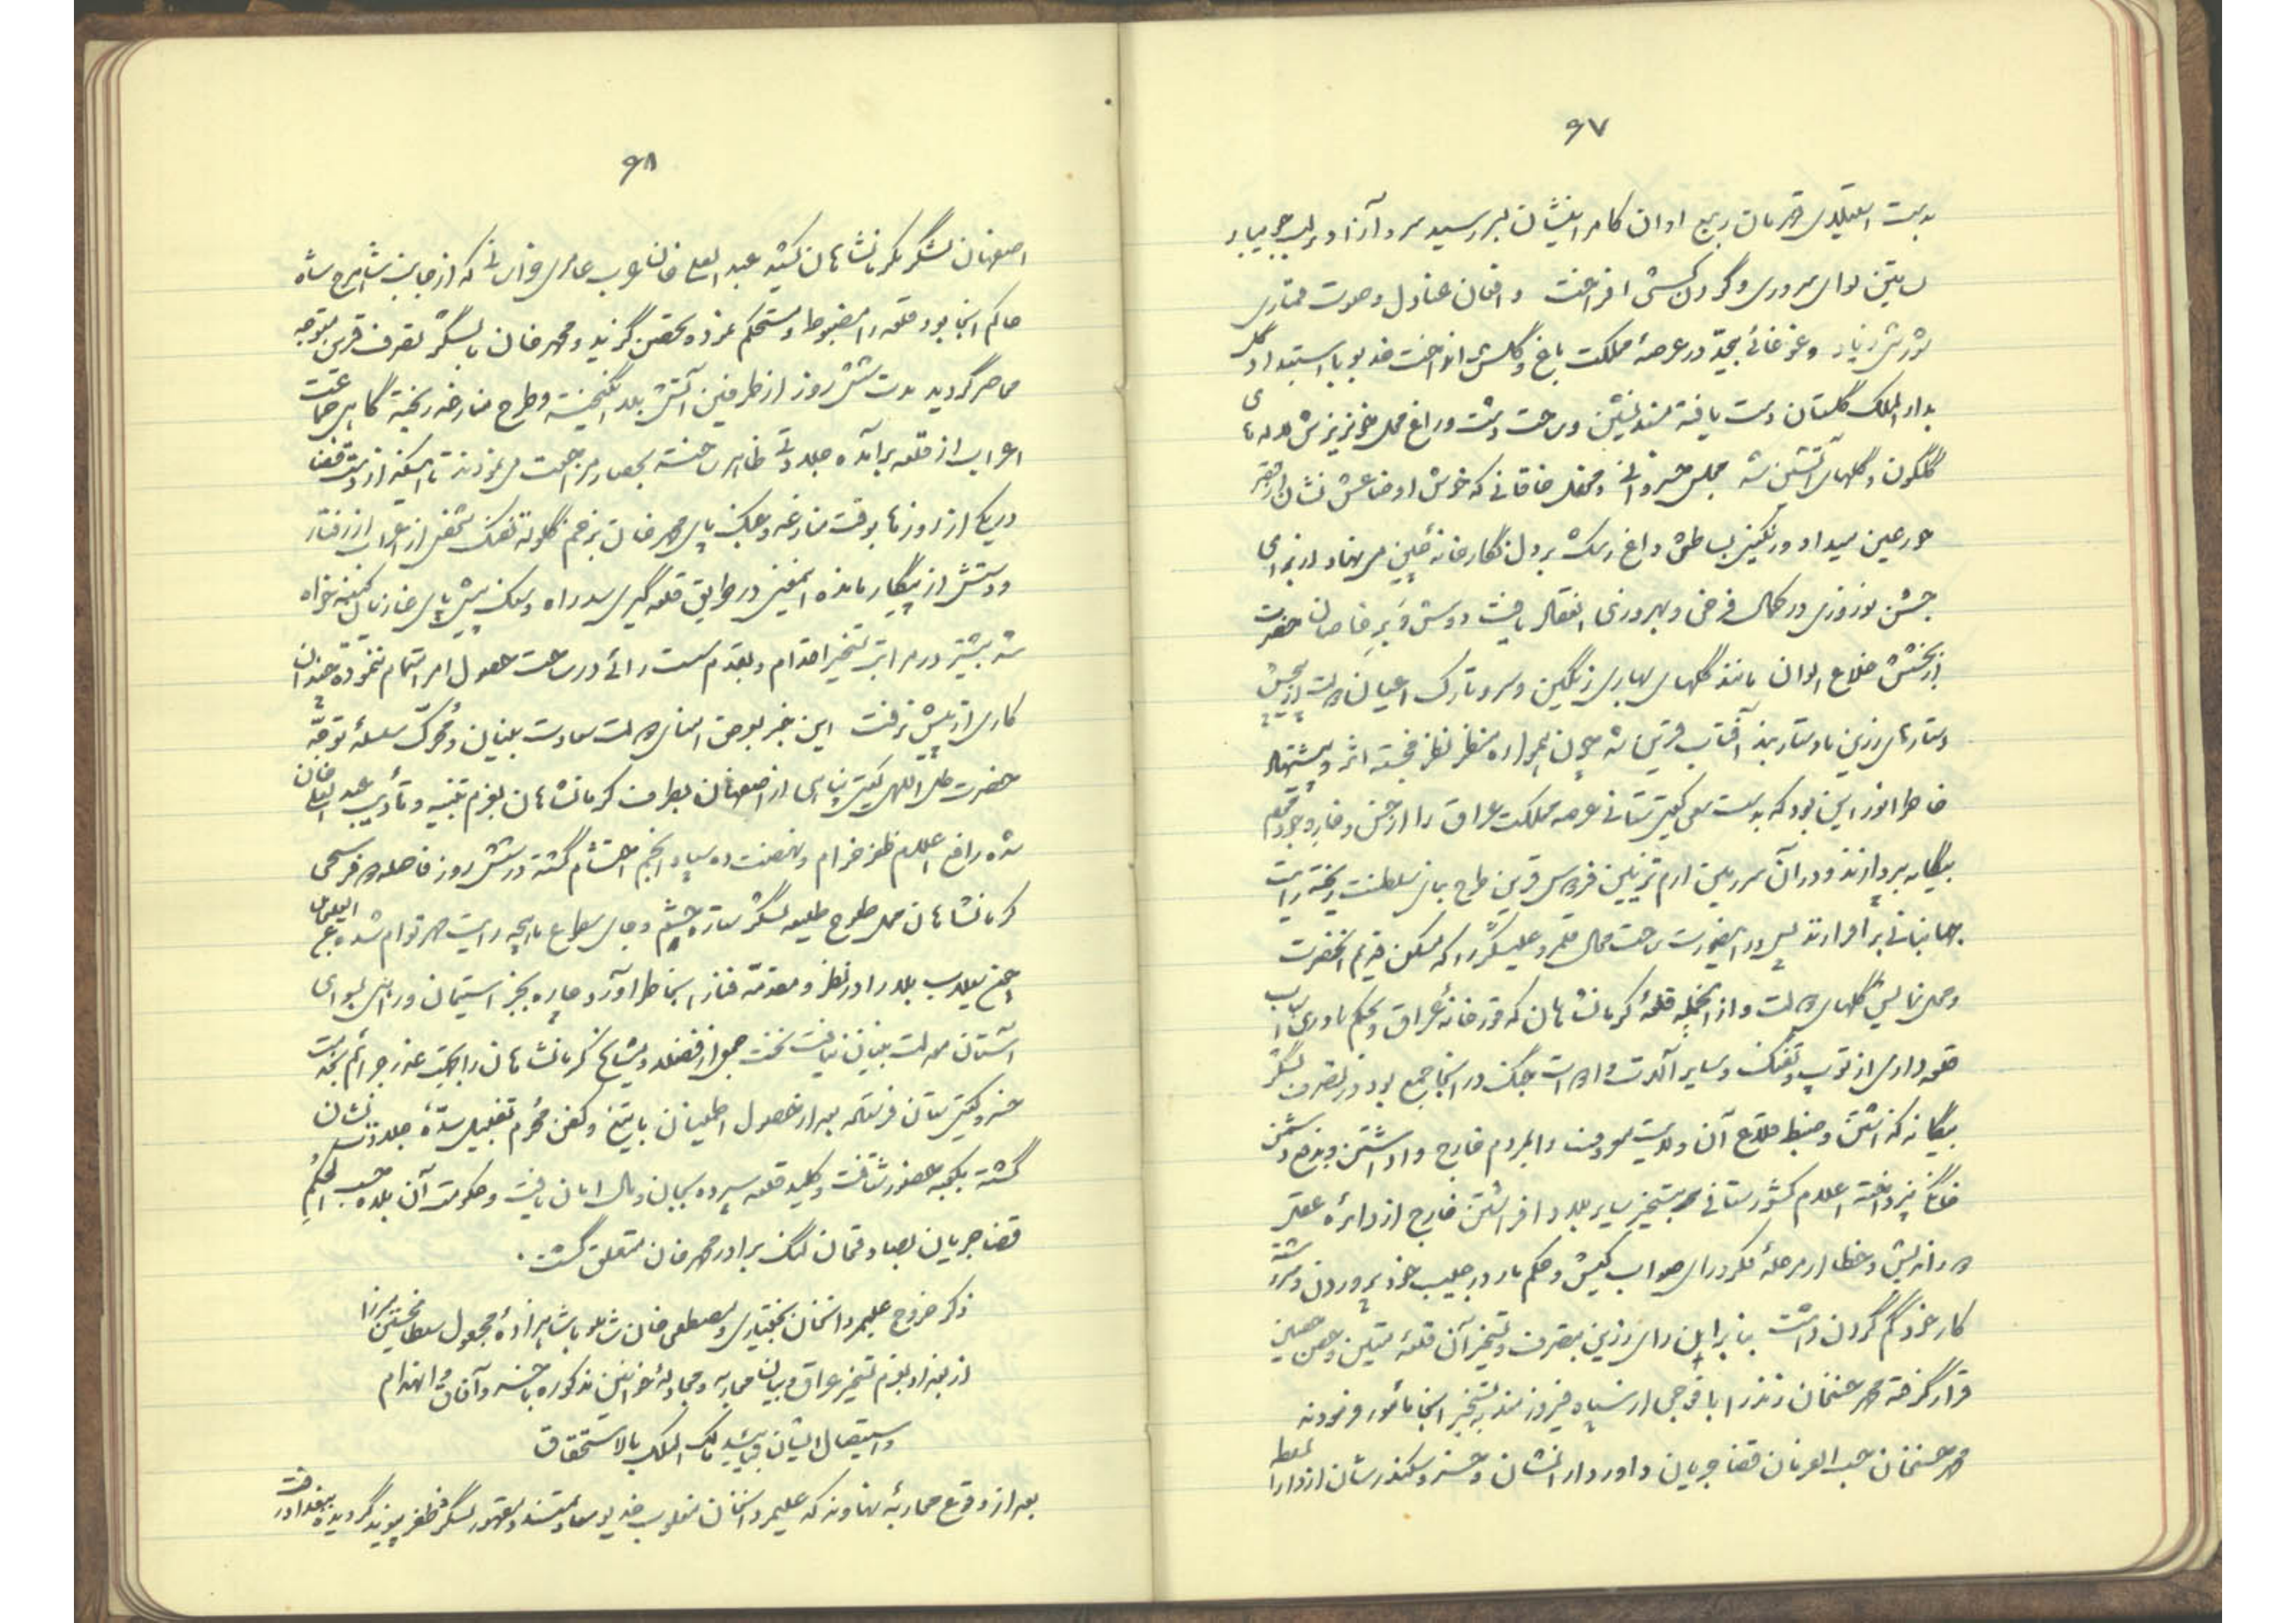 ۶۷
بدست استیلای قهرمان ربیع اوان کامرانیشان بسر رسید سرو آزاد بر لب جویبار
رایتین لوای سروری و گردن کشی افراخت و افغان عنادل و صوت قماری
شورش زیاد و غوغائی بیحد در عرصهٔ مملکت باغ و گلشن انداخت خدیو با استبداد گل
بدار الملک گلستان دست یافته مسند نشین و ساحت دشت و راغ محل خونریزش لاله های
گلگون و گلهای آتشین شد مجلس خسروانی و محفل خاقانی که خوش اوضاعش نشان از قصر
حور عین میداد و رنگین بساطش داغ رشک بر دل نگارخانهٔ چین می نهاد از برای
جشن نوروزی در کمال فرخی و بهروزی انعقاد یافت دوش و بر خاصان حضرت
از بخشش خلاع الوان مانند گلهای بهاری رنگین و سر و تارک اعیان دولت از
دستارهای زرین با دستار بند آفتاب قرین شد چون همواره منظر نظر خجسته اثر و پیشنهاد
خاطر انور این بود که بدست سعی گیتی ستانی عرصه مملکت عراق را از خس و خار وجود
بیگانه بپردازند و در آن سرزمین ارم تزئین فردوس قرین طرح بنای سلطنت ریخته رایت
جهانبانی بر افرازند پس در اینصورت ساحت محال قلمرو علیشکر را که مسکن قدیم آنحضرت
و محل نمایش گلهای دولت و از آنجمله قلعهٔ کرمانشاهان که قورخانهٔ عراق و بحکم نادری اسباب
قلعه داری از توپ و تفنگ و سایر آلات و ادوات جنگ در آنجا جمع بود در تصرف لشگر
بیگانه گذاشتن و ضبط قلاع آن ولایت معروف را بمردم خارج وا داشتن و بدفع دشمن
خانگی نپرداخته اعلام کشورستانی بتسخیر سایر بلاد افراشتن خارج از دایره عقل
دور اندیش و خطا از مرحلهٔ فکر و رای صواب کیش و حکم مار در جیب خود پروردن و سررشته
کار خود گم کردن داشت بنا بر این رای رزین بتصرف و تسخیر آن قلعهٔ متین و حصن حصین
قرار گرفته محمد حسنخان زند را با فوجی از سپاه فیروزمند به تسخیر آنجا مأمور فرمودند
محمد حسنخان حسب الفرمان قضا جریان داور دارا نشان و خسرو سکندر شان از دارالسلطنه
۶۸
اصفهان لشگر بکرمانشاهان کشید عبد العلی خان عرب که از جانب شاهرخ شاه
حاکم آنجا بود قلعه را مضبوط و مستحکم نموده تحصن گزید و محمد خان با لشگر نصرت قرین متوجه
محاصره گردید مدت شش روز از طرفین آتش بلا انگیخته و طرح منازعه ریخته گاهی جماعت
اعراب از قلعه برآمده جلادتی ظاهر ساخته بحصار مراجعت می نمودند تا اینکه از
در یکی از روزها بوقت منازعه و جنگ پای محمد خان بزخم گلولهٔ تفنگ شخصی از اعراب از رفتار
و دستش از پیگار مانده اینمعنی در طریق قلعه گیری سد راه و سنگ پیش پای غازیان کینه خواه
شد بیشتر در مراتب تسخیر اقدام و بقدم سست رائی در ساحت حصول امر اهتمام ننموده چندان
کاری از پیش نرفت این خبر بعرض امنای دولت سعادت بنیان و محرک سلسلهٔ توجه
حضرت ظل اللهی گیتی پناهی از اصفهان بطرف کرمانشاهان بعزم تنبیه و تأدیب عبد العلی خان
شده رافع اعلام ظفر فرجام و نهضت ده سپاه انجم احتشام گشته در شش روز فاصلهٔ دو فرسخی
کرمانشاهان محل طلوع طلیعه لشگر ستاره حشم و جای سطوع ماهچه رایت مهر توام شده عبد العلیخان
نزول سیلاب بلا را در نظر و مقدمه فنا را بخاطر آورد چاره بجز استیمان و رو بسوی
آستان دولت بنیان نیافت نخست جمعی از فضلا و مشایخ کرمانشاهان را بجهت عذر جرائم بخدمت
خسرو گیتی ستان فرستاد بعد از حصول اطمینان با تیغ و کفن محرم تقبیل سدهٔ جلادت نشان
گشته بکعبهٔ حضور شتافت و کلید قلعه سپرده بجان و مال امان یافت و حکومت آن بلده حسب الحکم
قضا جریان بصادقخان لنگ برادر محمد خان متعلق گشت.
ذکر خروج علیمردانخان بختیاری و مصطفی خان شاملو با شاهزادهٔ مجعول سلطان حسین میرزا
از بغداد بعزم تسخیر عراق و بیان محاربه و مجادلهٔ خوانین مذکوره با خسرو آفاق و انهزام
و استیصال ایشان بتأیید مالک الملک بالاستحقاق
بعد از وقوع محاربهٔ نهاوند که علیمردانخان مغلوب خدیو سعادتمند و مقهور لشگر ظفر پیوند گردیده ببغداد رفت